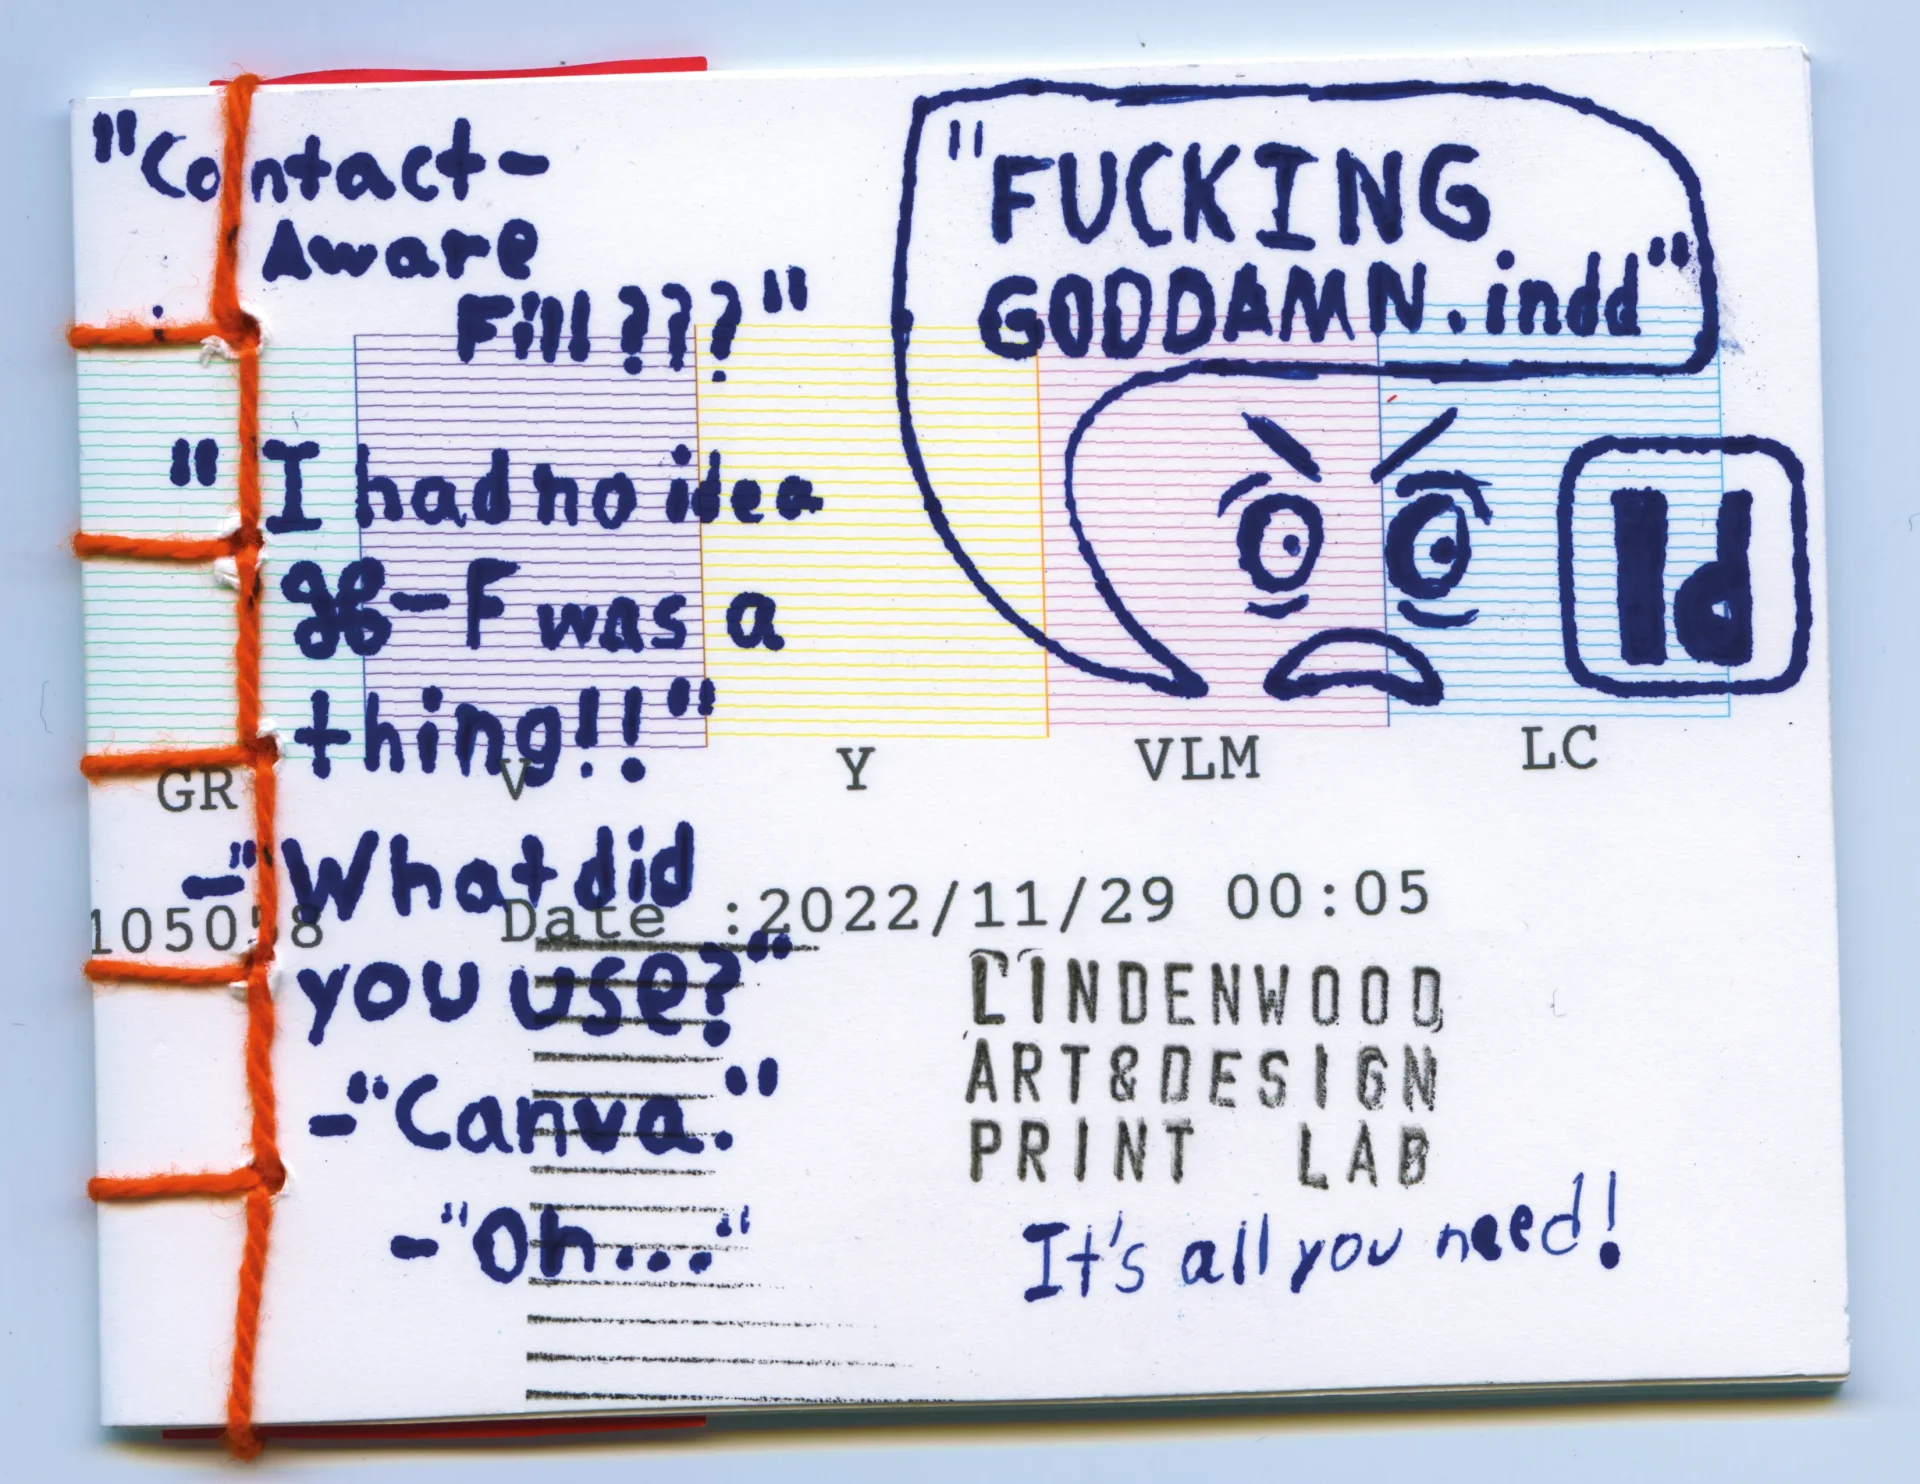 "Contact-
Aware
Fill???"
"I had no idea
⌘-F was a
thing!!"
-"What did
you use?"
-"Canva."
-"Oh..."
"FUCKING
GODDAMN.indd"
Id
GR V Y VLM LC
Date :2022/11/29 00:05
LINDENWOOD
ART&DESIGN
PRINT LAB
It's all you need!